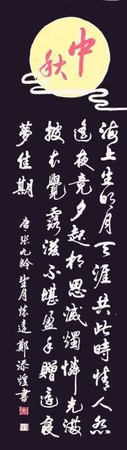 中秋
海上生明月天涯共此時情人怨
遙夜竟夕起相思滅燭憐光滿
披衣覺露滋不堪盈手贈還寢
夢佳期
唐張九齡望月懷遠鄭添煌書